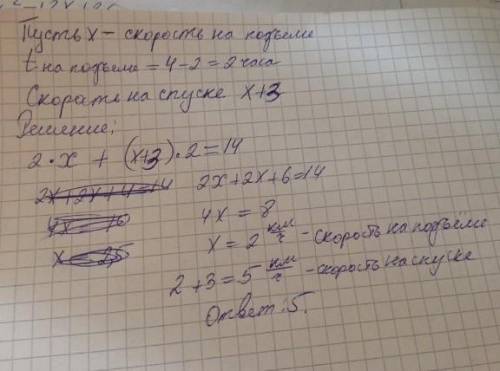 Пусть x – скорость на подъеме
t на подъеме = 4-2 = 2 часа
Скорость на спуске x+3
Решение:
2·x + (x+3)·2=14
2x+2x+4=14 2x+2x+6=14
4x = 8
x = 2 км/ч - скорость на подъеме
2+3=5 км/ч - скорость на спуске
Ответ: 5.